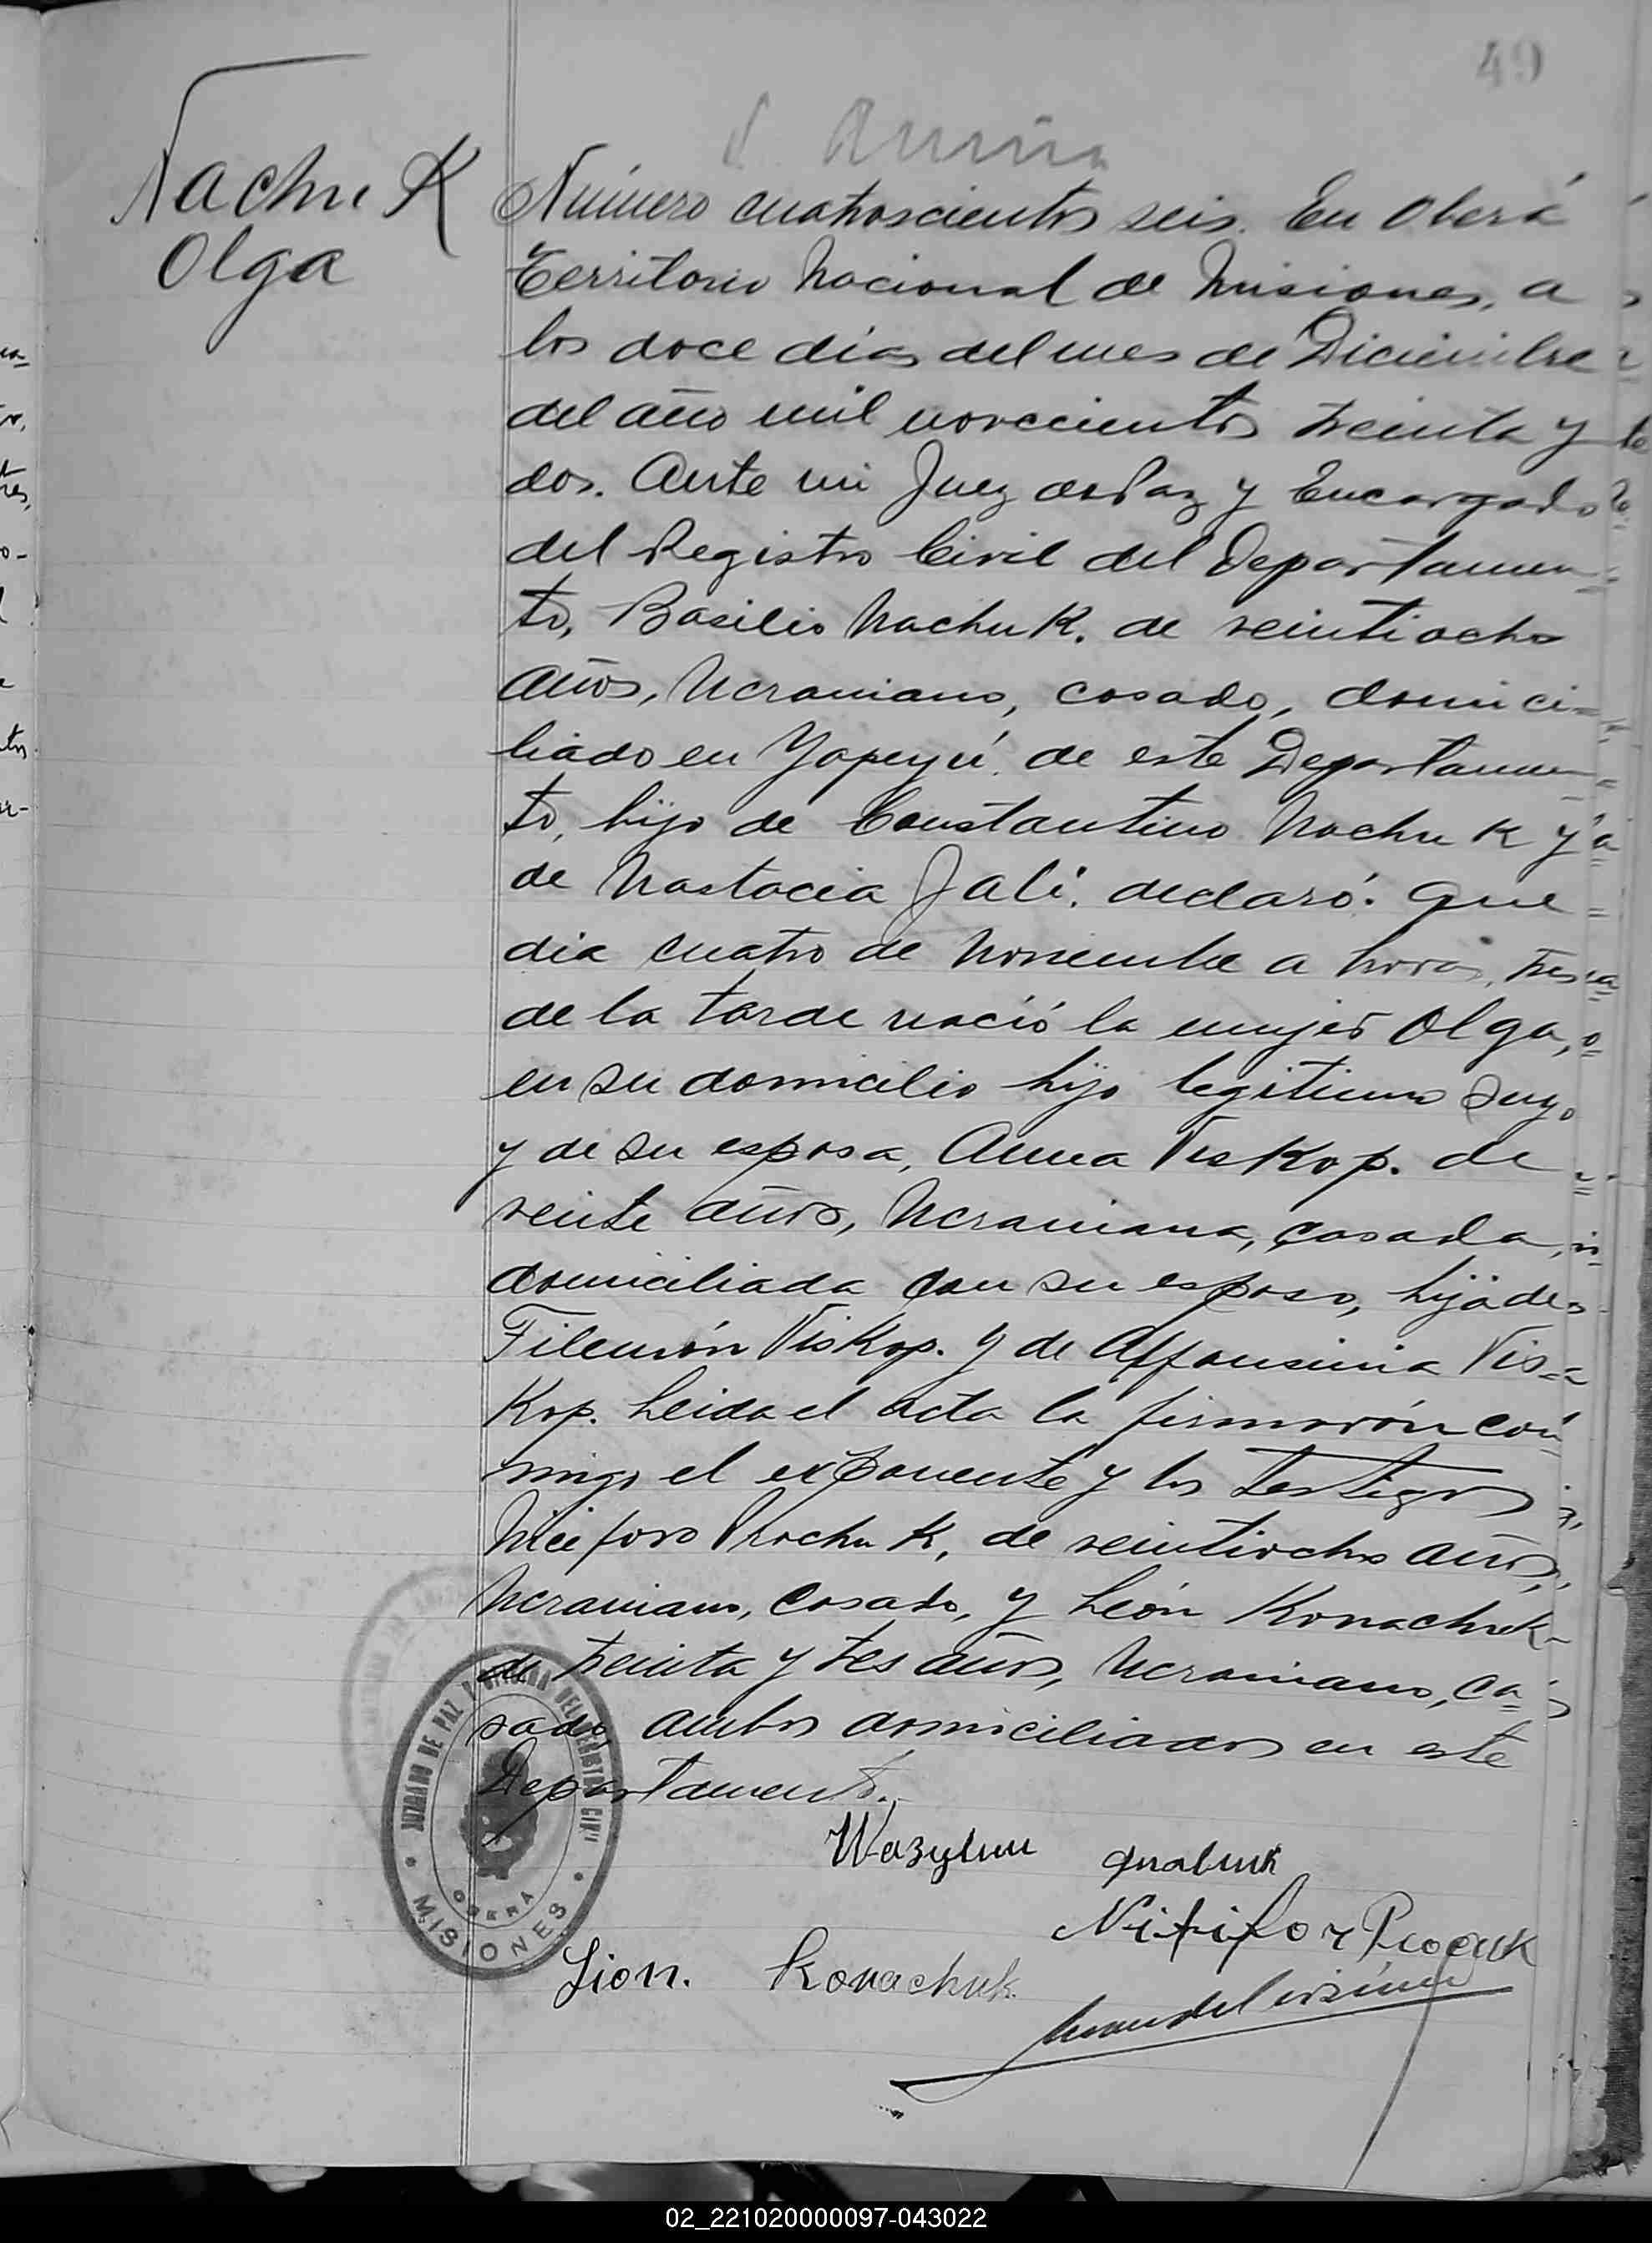 49
Nachu K
Olga
Número cuatroscientos seis. En Oberá
Territorio Nacional de Misiones, a
los doce días del mes de Diciembre
del año mil novecientos treinta y
dos. Ante mi Juez de Paz y Encargado
del Registro Civil del Departamen-
to, Basilio Nachu K. de veintiocho
años, Ucraniano, casado, domici-
liado en Yapeyú de este Departamen-
to, hijo de Constantino Nachu K y
de Nastacia Jali. declaró: Que
dia cuatro de Noviembre a horas, tres
de la tarde nació la mujer Olga,
en su domicilio hijo legitimo suyo
y de su esposa, Anna Viskop. de
veinte años, Ucraniana, casada,
domiciliada con su esposo, hija de
Filemón Viskop. y de Affansinia Vis-
Kop. Leida el acta la firmarón con-
migo el exponente y los testigos
Niceforo Prochu K, de veintiocho años,
Ucraniano, casado, y León Konachuk-
de treinta y tes años, Ucraniano, ca-
sado, ambos domiciliados en este
Departamento.
JUZGADO DE PAZ Y OFICINA DEL REGISTRO CIVIL
OBERA
MISIONES
Wazylun
Nikifor
Lion. Konachuk.
02_221020000097-043022